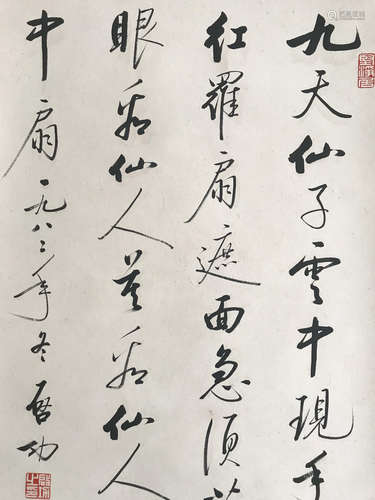 九天仙子云中現手
红羅扇遮面急須着
眼看仙人莫看仙人
中扇一九八二年冬啓功